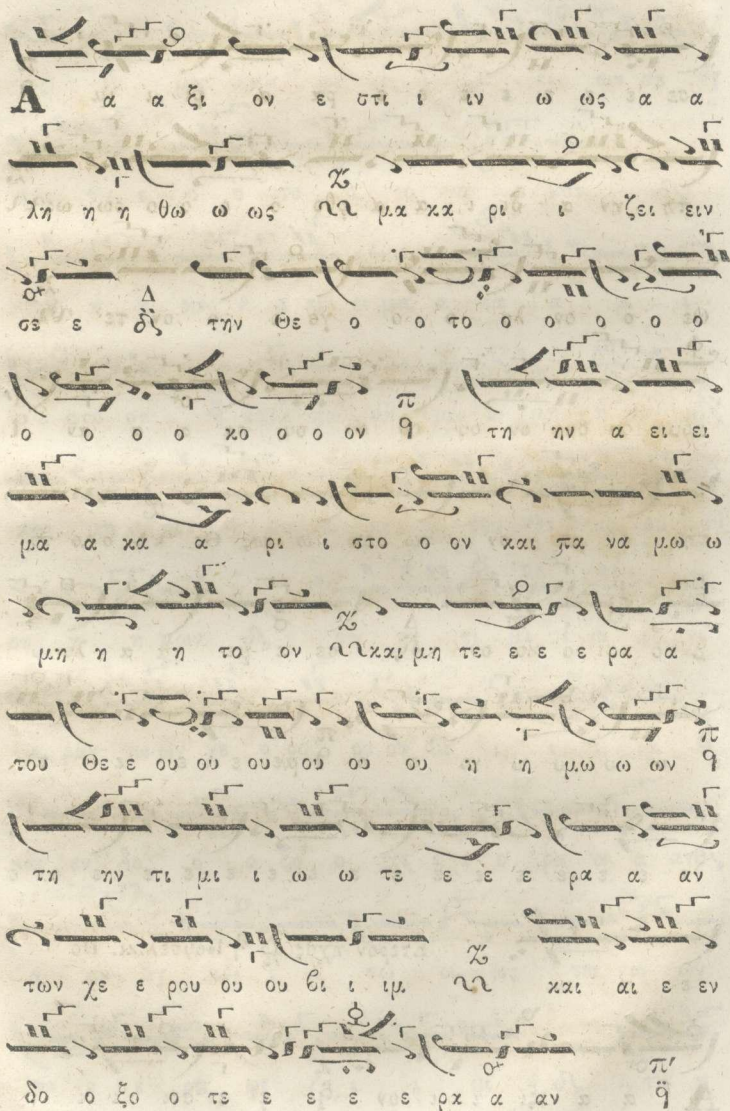 Α α α ξι ον ε στι ι ιν ω ως α α
λη η η θω ω ως Ζ μα κα ρι ι ζει ειν
σε ε Δ την Θε ο ο το ο ο ο ο ο
ο ο ο ο κο ο ο ον π q τη ην α ει ει
μα α κα α ρι ι στο ο ον και πα να μω ω
μη η η το ον Ζ και μη τε ε ε ε ρα α
του Θε ε ου ού ου ου ου ου η η μω ω ων π q
τη ην τι μι ι ω ω τε ε ε ε ρα α αν
των χε ε ρου ου ου βι ι ιμ Ζ και αι ε εν
δο ο ξο ο τε ε ε ε ε ρα α αν π' q